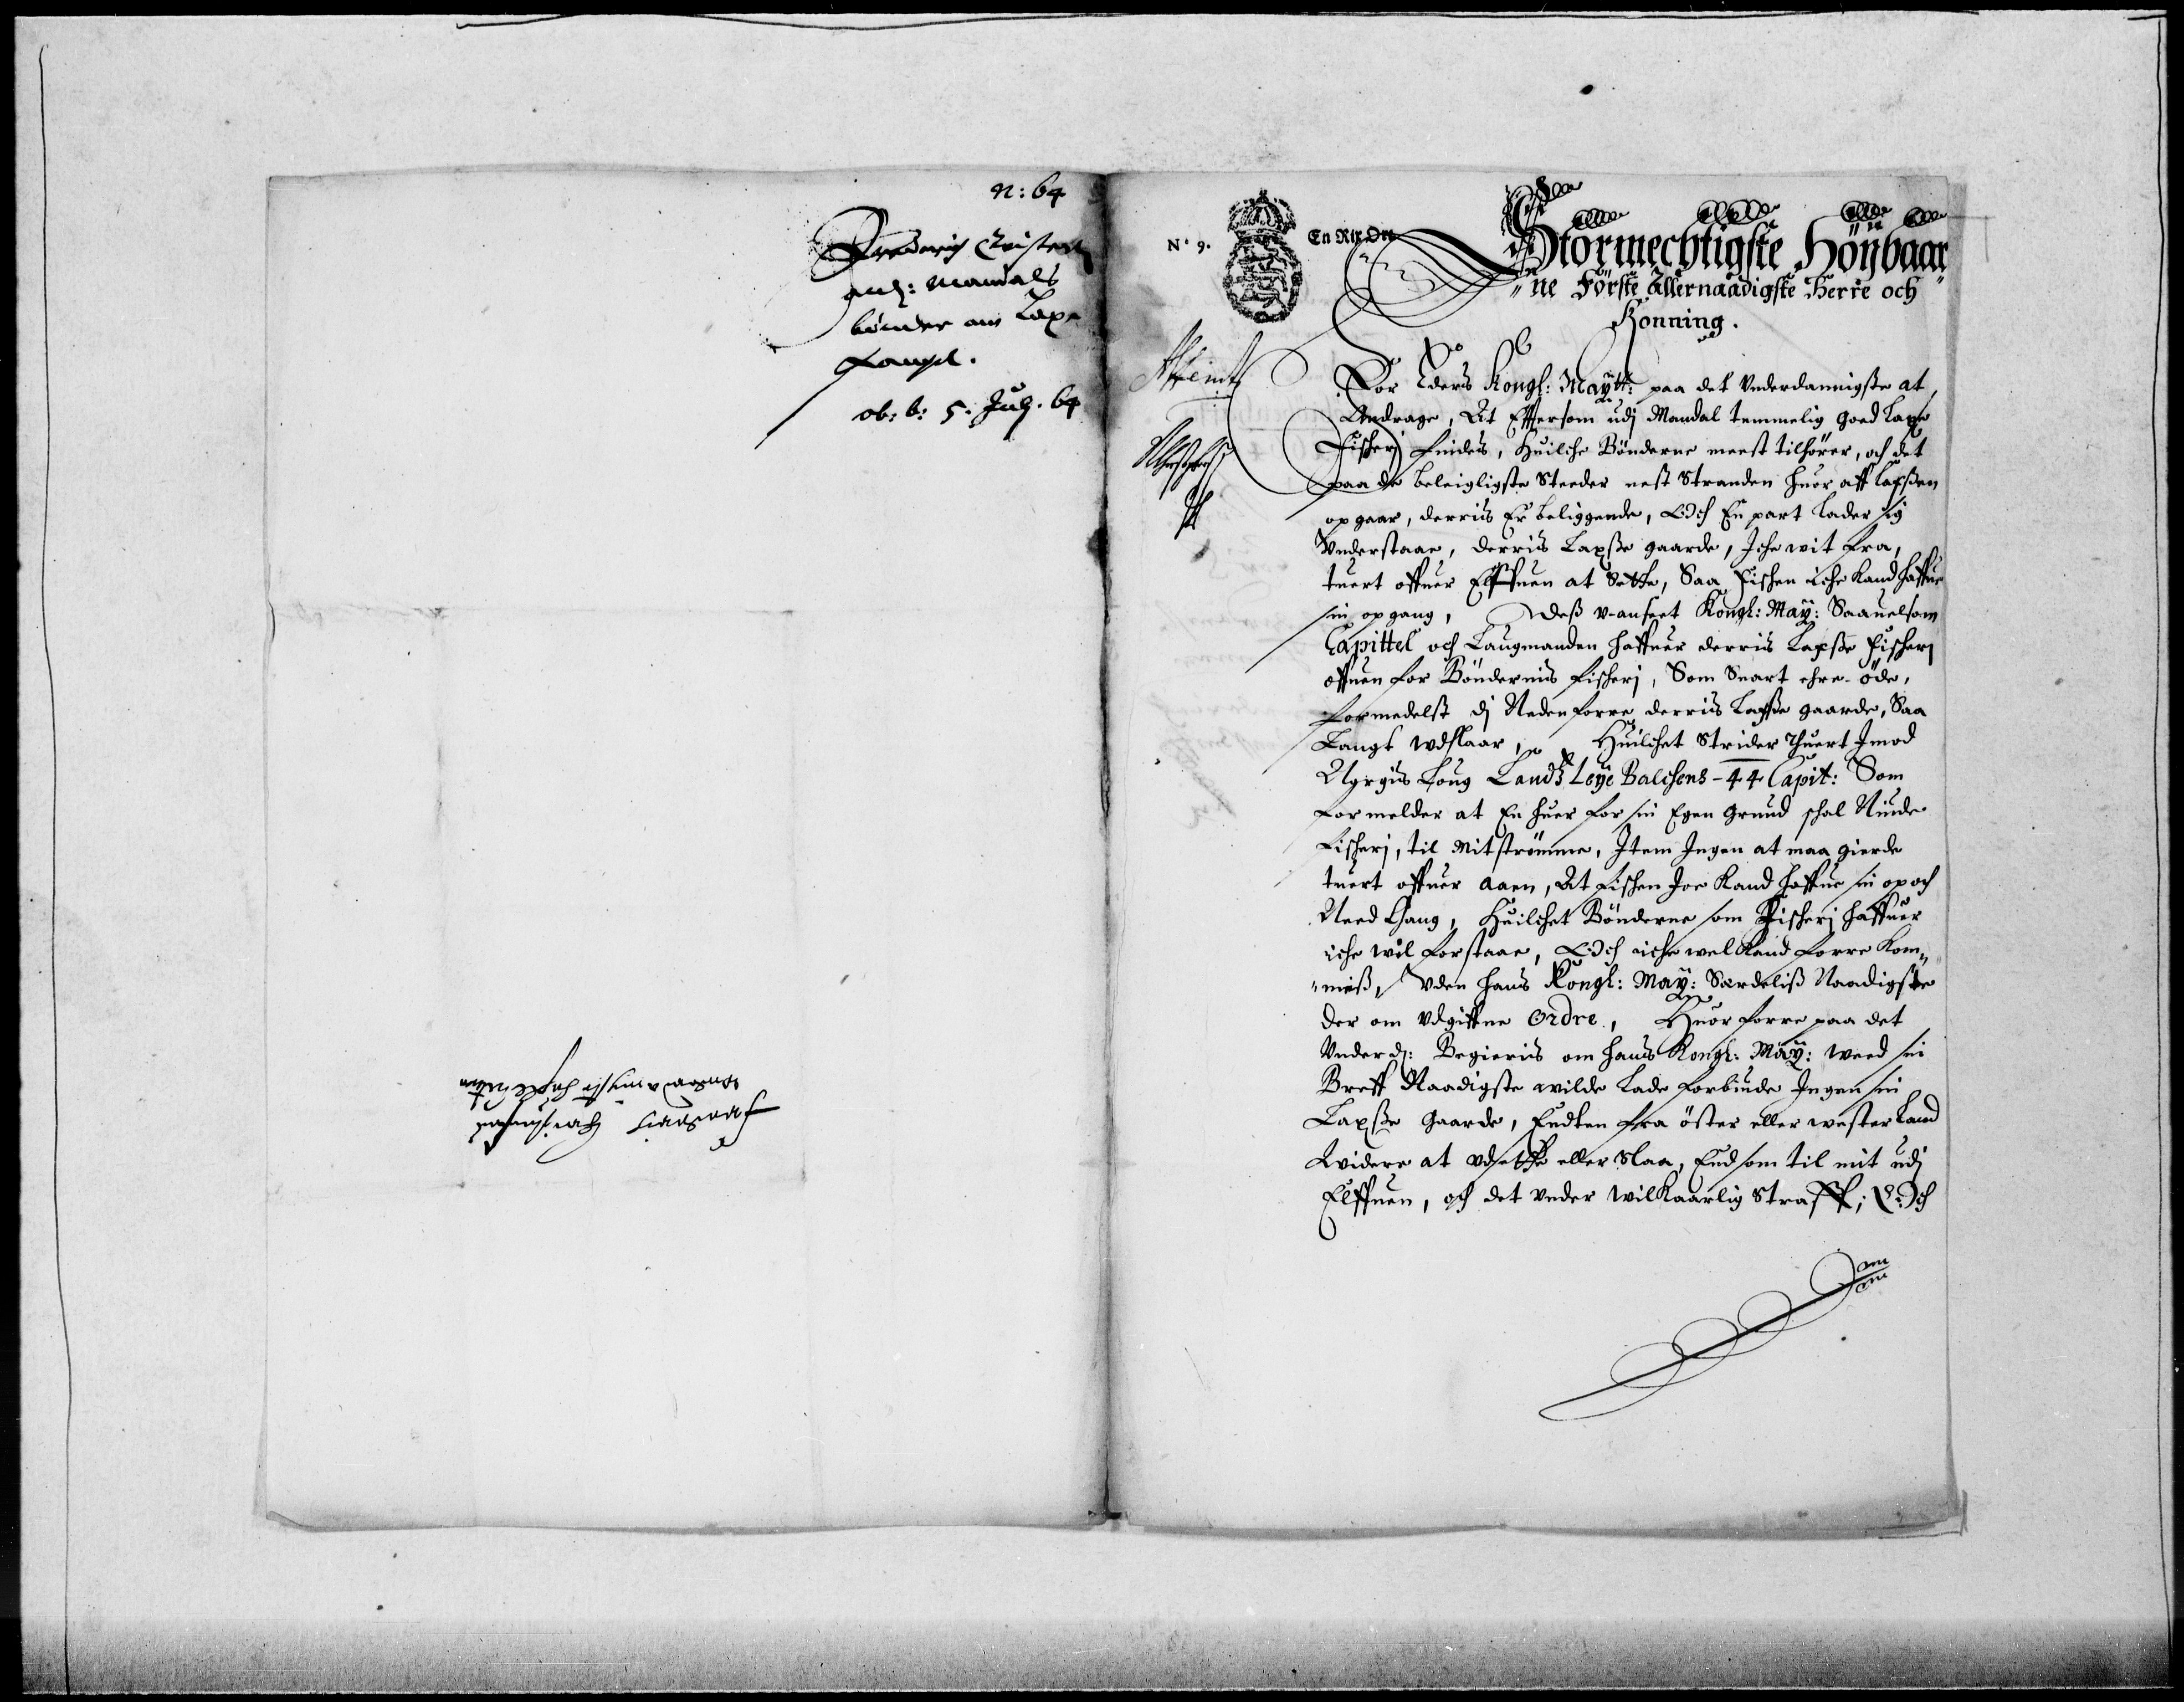 n: 64
Frederich Christens
anl: Mandals
bönder om Laxe
fangst.
ob: b: 5. Julj. 64
N° 9.
En Rix Ort
Störmechtigste Höÿbaar
"ne Förste Allernaadigste Herre och
Konning.
For Eders Kongl: Maÿtt: paa det Underdannigste at
Andrage, At Effersom udj Mandal temmelig goed Laxe
Fischerj findes, Huilche Bönderne meest tilhörer, och det
paa de beleigligste Steeder nest Stranden huor aff Laxßen
opgaar, derris Er beliggende, Och En part lader sig
Understaae, derris Laxße gaarde, Iche wit fra,
tuert offuer Elffuen at Sette, Saa Fischen iche kand haffue
sin opgang, Deß v-anseet Kongl: Maÿ: Saauelsom
Capittel och Laugmanden haffuer derris Laxße Fischerj
offuen for Böndernis fischerj, Som Snart ehre öde,
formedelst dj Neden forre derris Laxße gaarde, Saa
Langt wdslaar, Huilchet Strider thuert Imod
Norgis Loug Landz Leÿe Balchens - 44 Capit: Som
formelder at En huer for sin Egen grund schal Niude
fischerj, til Mitströmme, Item Ingen at maa gierde
tuert offuer aaen, At fischen Joe Kand haffue sin op och
Need Gang, Huilchet Bönderne som Fischerj haffuer
iche wil forstaae, Och iche wel kand forre kom"
"miß, Uden hans Kongl: Maÿ: Særdeliß Naadigste
der om Udgiffne Ordre, Huor forre paa det
Underd: Begieris om hans Kongl: Maÿ: weed sin
Breff Naadigste wilde lade forbiude Ingen sin
Laxße gaarde, Endten fra öster eller wester Land
Widere at udsette eller Slaa, End som til mit udj
Elffuen, och det under wilkaarlig Straff; Och